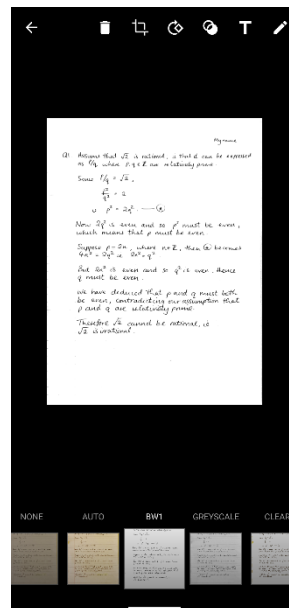 T
My name
Q1 Assume that √2 is rational, ie that it can be expressed
as p/q where p, q ∈ Z are relatively prime
Since p/q = √2,
p²/q² = 2
p² = 2q²
Now 2q² is even and so p² must be even,
which means that p must be even.
Suppose p = 2n, where n ∈ Z, then becomes
4n² = 2q² 2n² = q²
But 2n² is even and so q² is even, hence
q must be even.
We have deduced that p and q must both
be even, contradicting our assumption that
p and q are relatively prime.
Therefore √2 cannot be rational, ie
√2 is irrational.
NONE AUTO BW1 GREYSCALE CLEAR